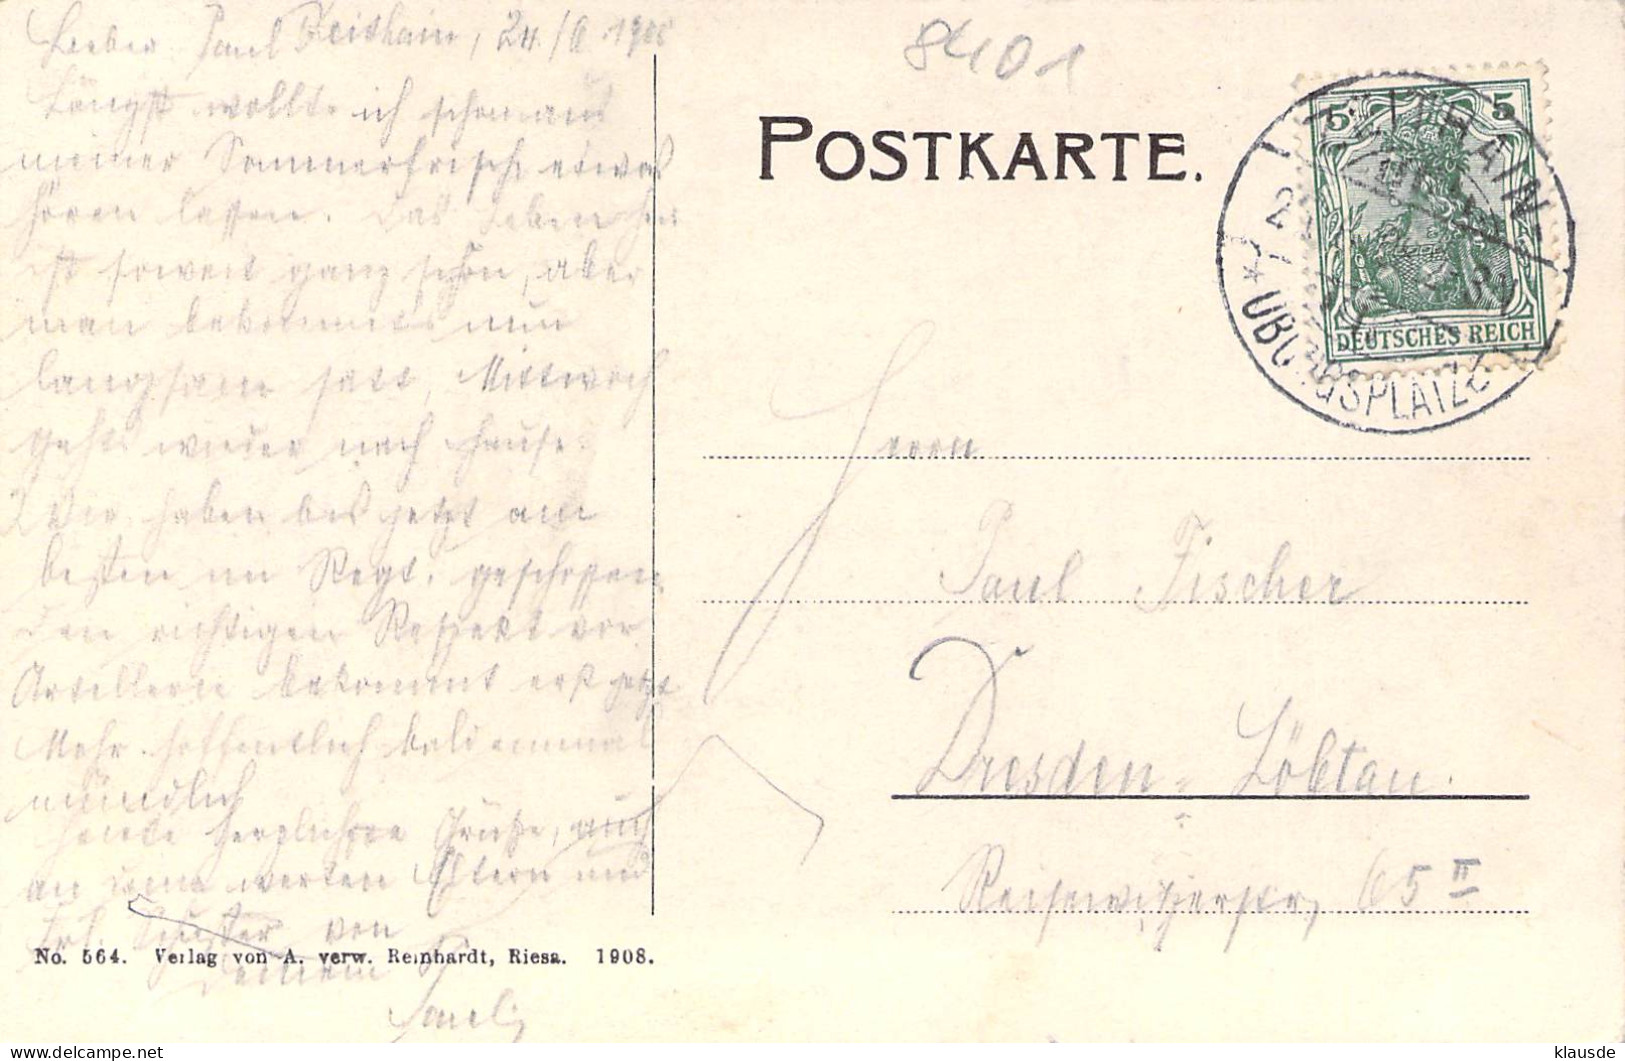 Lieber Paul Zeithain, 24./6. 1908
Längst wollte ich schon aus
meiner Sommerfrische etwas
hören lassen. Das Leben hier
ist soweit ganz schön, aber
man bekommts nun
langsam satt, Mittwoch
gehts wieder nach Hause.
Wir haben bis jetzt am
besten im Regt. geschossen.
Den richtigen Respekt vor
Artillerie bekommt erst jetzt
Mehr hoffentlich bald einmal
mündlich
herzlichste Grüße, auch
an deine werten Eltern und
Frl. Schuster von
deinem
8401
POSTKARTE.
5 5
DEUTSCHES REICH
ZEITHAIN
ÜBUNGSPLATZ
Herrn
Paul Fischer
Dresden-Löbtau.
Reisewitzerstr, 65 II
No. 564. Verlag von A. verw. Reinhardt, Riesa. 1908.
klausde